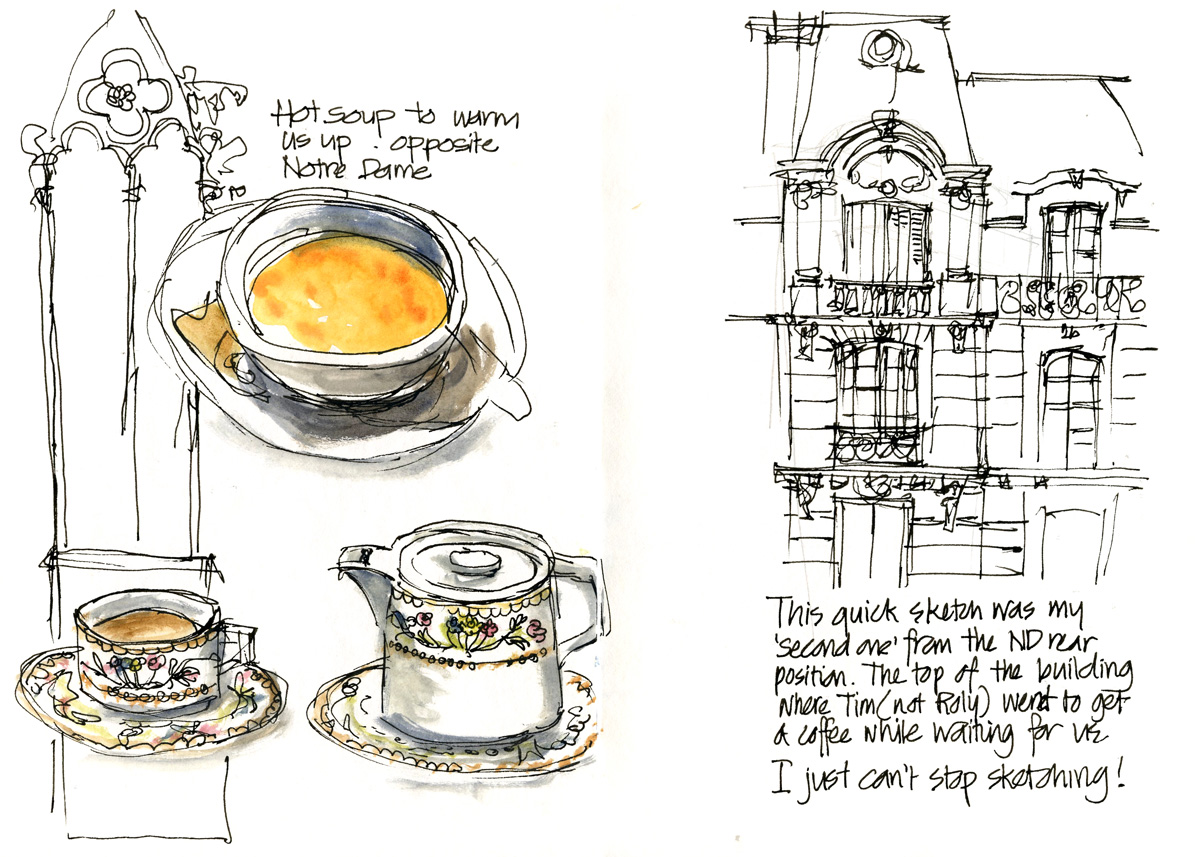 Hot soup to warm
us up . opposite
Notre Dame
This quick sketch was my
'second one' from the ND rear
position. The top of the building
where Tim (not Roly) went to get
a coffee while waiting for us
I just can't stop sketching!